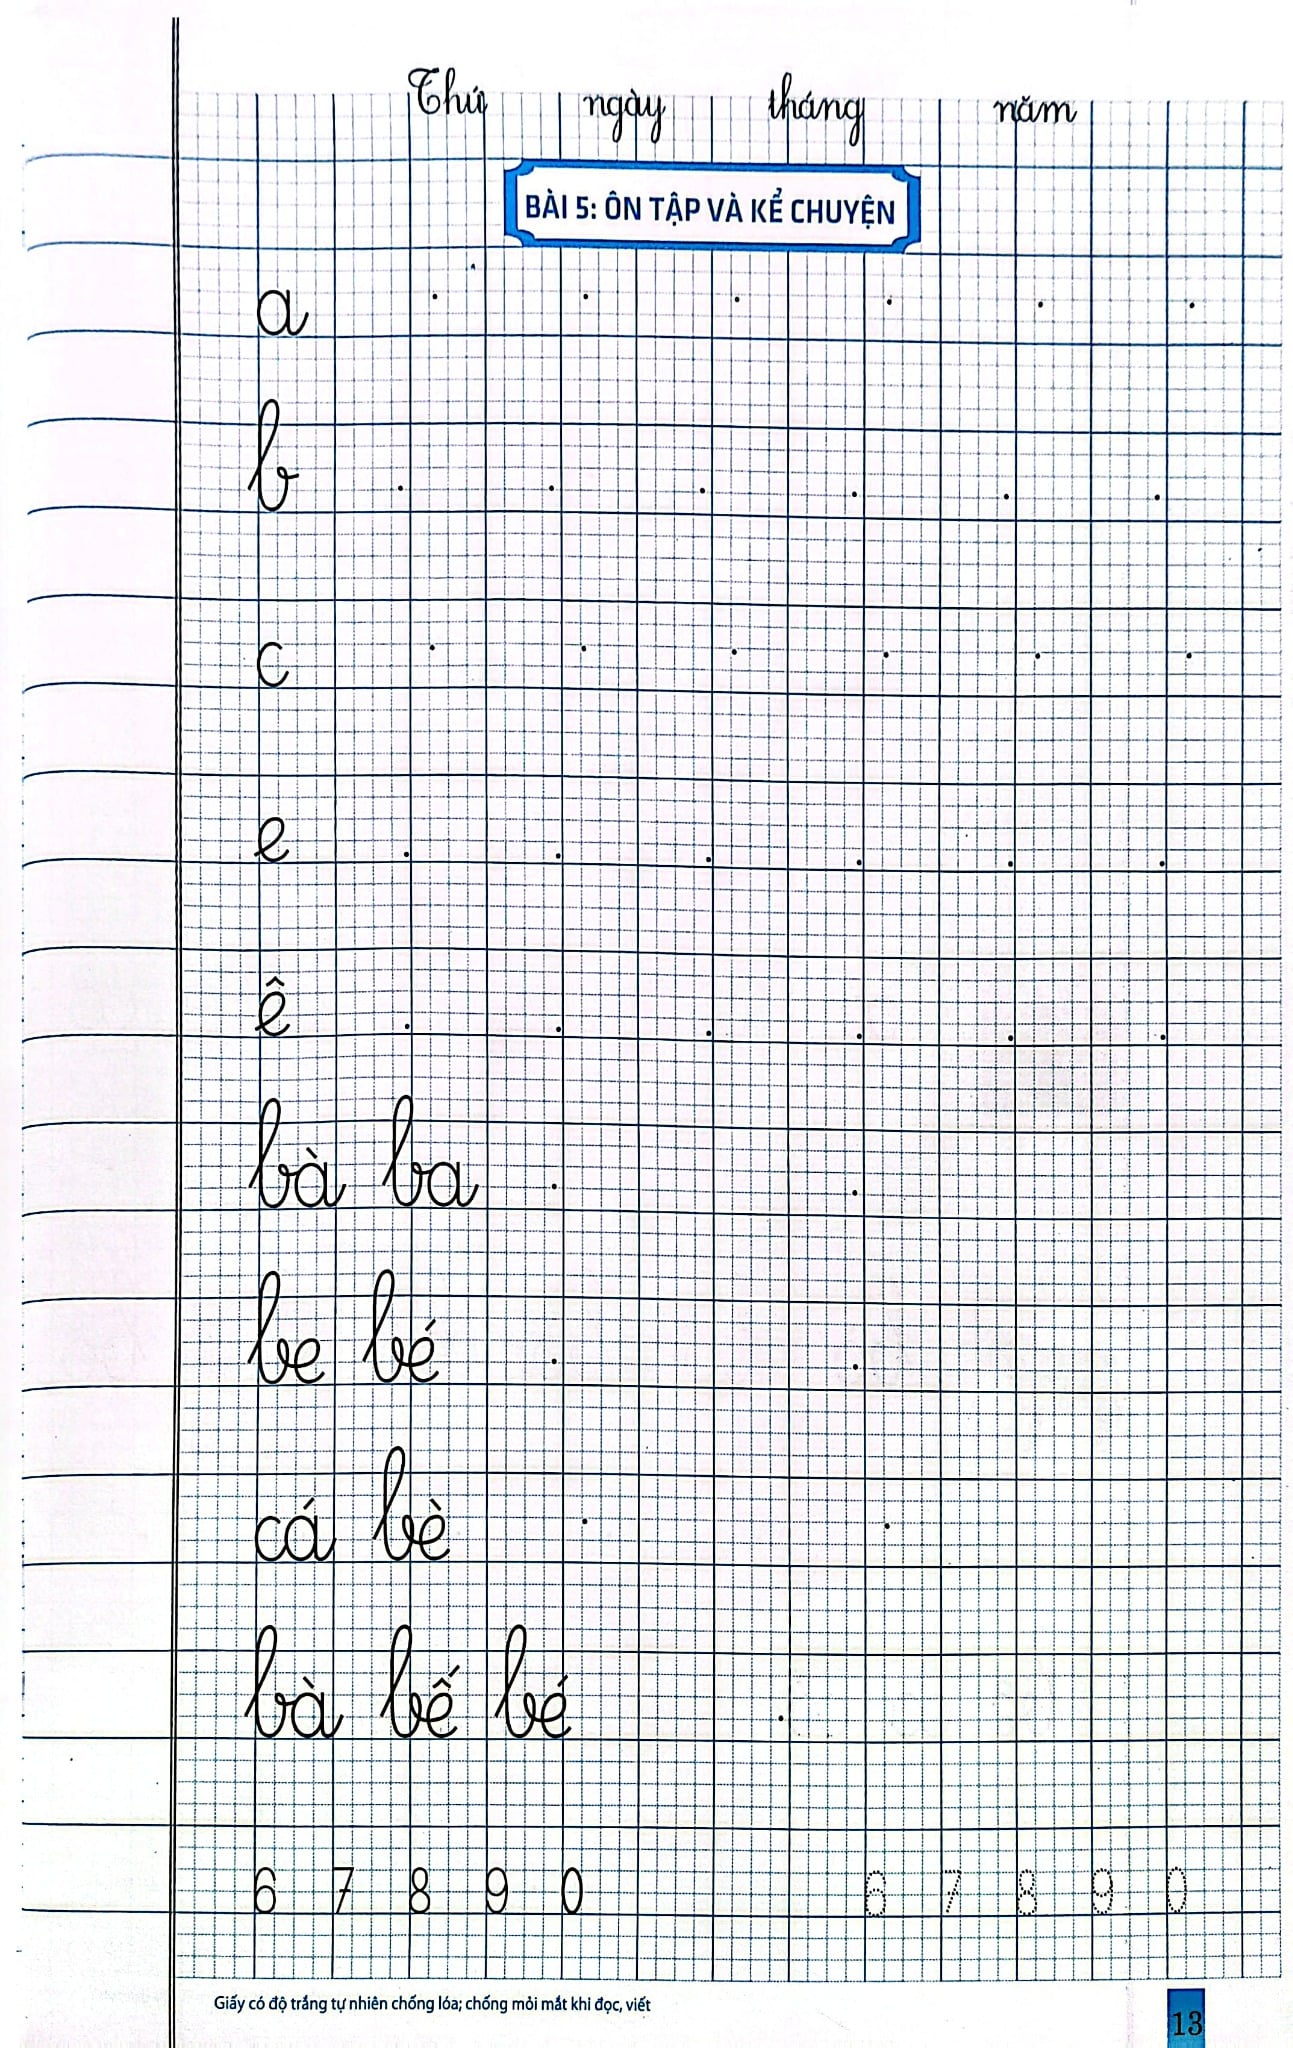 Thứ ngày tháng năm
BÀI 5: ÔN TẬP VÀ KỂ CHUYỆN
a
b
c
e
ê
bà ba
be bé
cá bè
bà bế bé
6 7 8 9 0 6 7 8 9 0
Giấy có độ trắng tự nhiên chống lóa; chống mỏi mắt khi đọc, viết
13